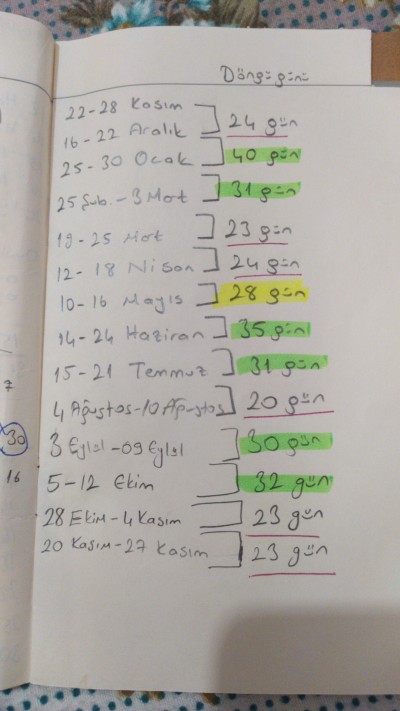 Döngü günü
22-28 Kasım
24 gün
16-22 Aralık
40 gün
25-30 Ocak
31 gün
25 Şub. - 3 Mart
19-25 Mart
23 gün
12-18 Nisan
24 gün
10-16 Mayıs
28 gün
14-24 Haziran
35 gün
15-21 Temmuz
31 gün
4 Ağustos-10 Ağustos
20 gün
3 Eylül-09 Eylül
30 gün
5-12 Ekim
32 gün
28 Ekim-4 Kasım
23 gün
20 Kasım-27 Kasım
23 gün
7
30
16